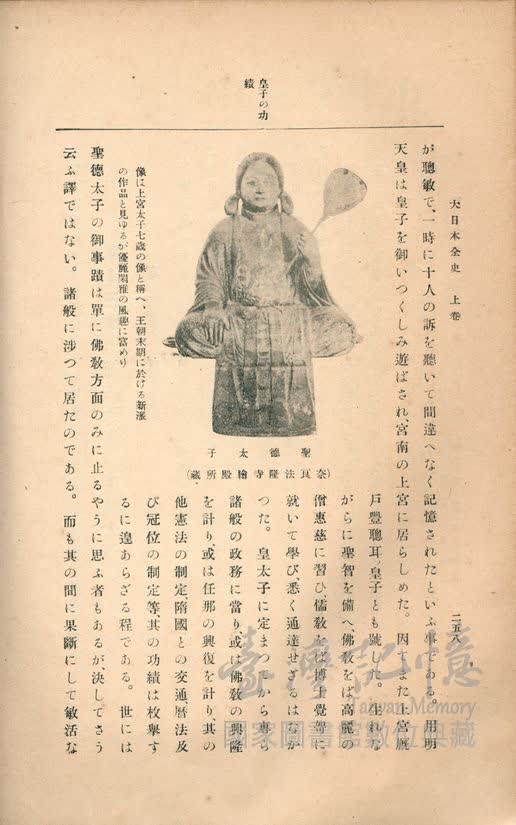 大日本全史　上卷
二五八
皇子の功
績
が聰敏で、一時に十人の訴を聽いて間違へなく記憶されたといふ事である。用明
天皇は皇子を御いつくしみ遊ばされ、宮南の上宮に居らしめた。因てまた上宮厩
戸豐聰耳ノ皇子とも號した。生れな
がらに聖智を備へ、佛敎をば高麗の
僧惠慈に習ひ、儒敎をば博士覺哿に
就いて學び、悉く通達せざるはなか
つた。皇太子に定まつてから專ら
諸般の政務に當り、或は佛敎の興隆
を計り、或は任那の興復を計り、其の
他憲法の制定、隋國との交通、曆法及
び冠位の制定等其の功績は枚擧す
るに遑あらざる程である。世には
聖德太子
(奈良法隆寺繪殿所藏)
像は上宮太子七歲の像と稱へ、王朝末期に於ける新派
の作品と見ゆるが優麗閑雅の風趣に富めり
聖德太子の御事蹟は單に佛敎方面のみに止るやうに思ふ者もあるが、決してさう
云ふ譯ではない。諸般に涉つて居たのである。而も其の間に果斷にして敏活な
臺灣記憶
Taiwan Memory
國家圖書館數位典藏